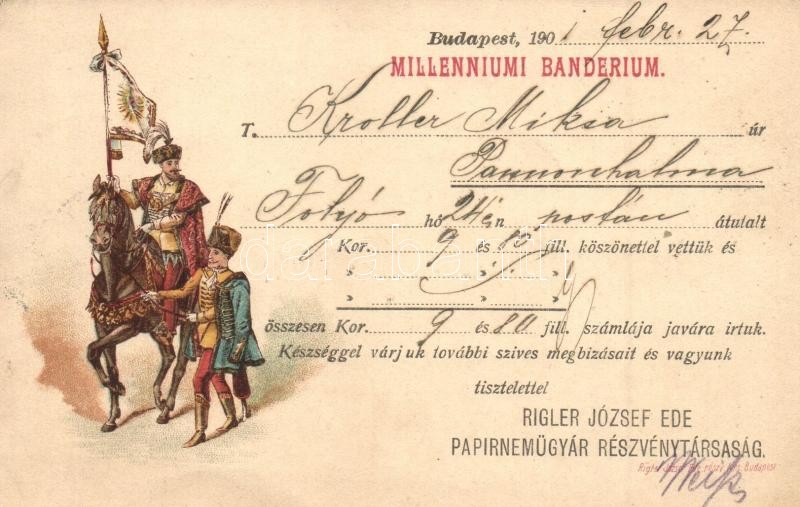 Budapest, 1901 febr. 27.
MILLENNIUMI BANDERIUM.
T. Kroller Miksa úr
Pannonhalma
Folyó hó 24én postán átutalt
Kor. 9 és 80 fill. köszönettel vettük és
" " "
" " "
összesen Kor. 9 és 80 fill. számlája javára irtuk.
Készséggel várjuk további szives megbizásait és vagyunk
tisztelettel
RIGLER JÓZSEF EDE
PAPIRNEMŰGYÁR RÉSZVÉNYTÁRSASÁG.
Rigler József Ede Budapest